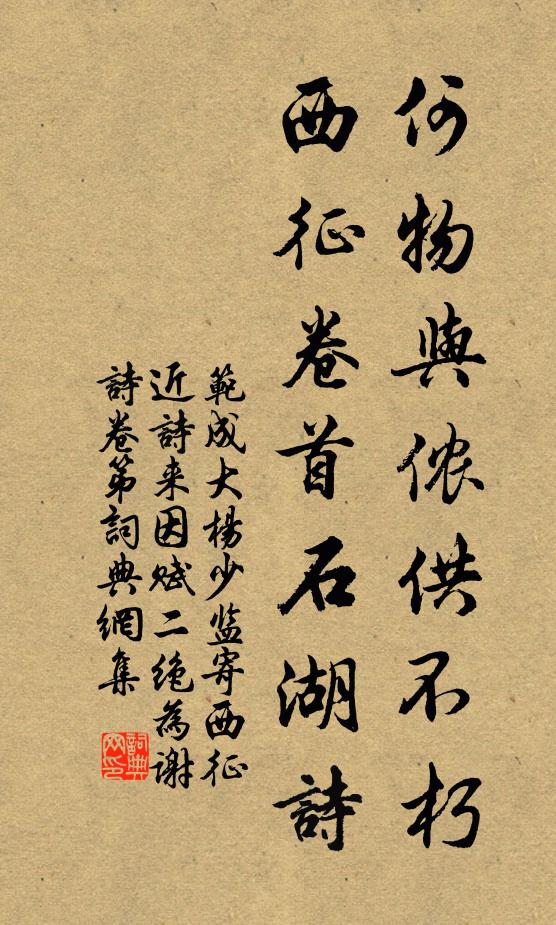 何物與儂供不朽
西征卷首石湖詩
範成大楊少監寄西征
近詩来因賦二絶為謝
詩卷第詞典網集
詞典网印